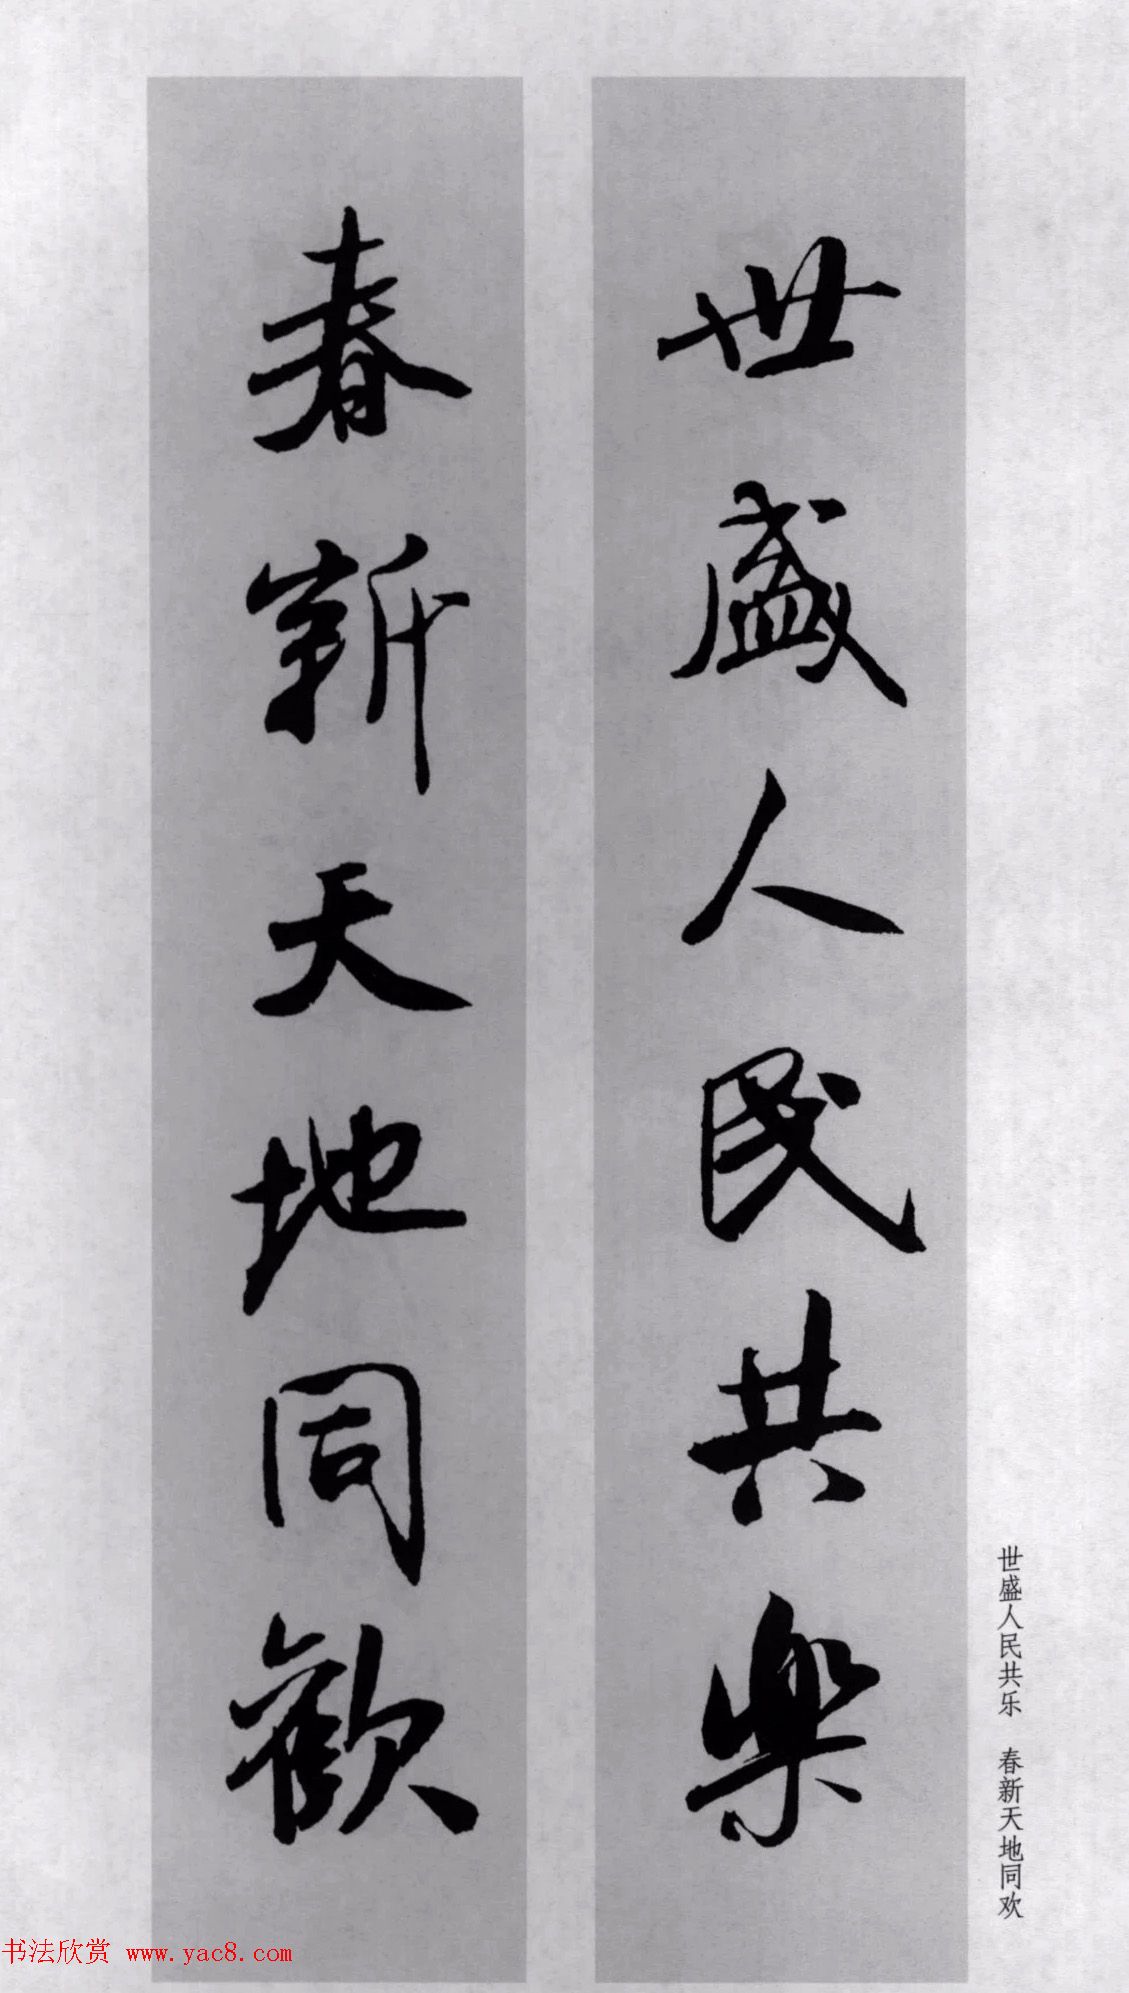 世盛人民共樂
春新天地同歡
世盛人民共乐 春新天地同欢
书法欣赏 www.yac8.com